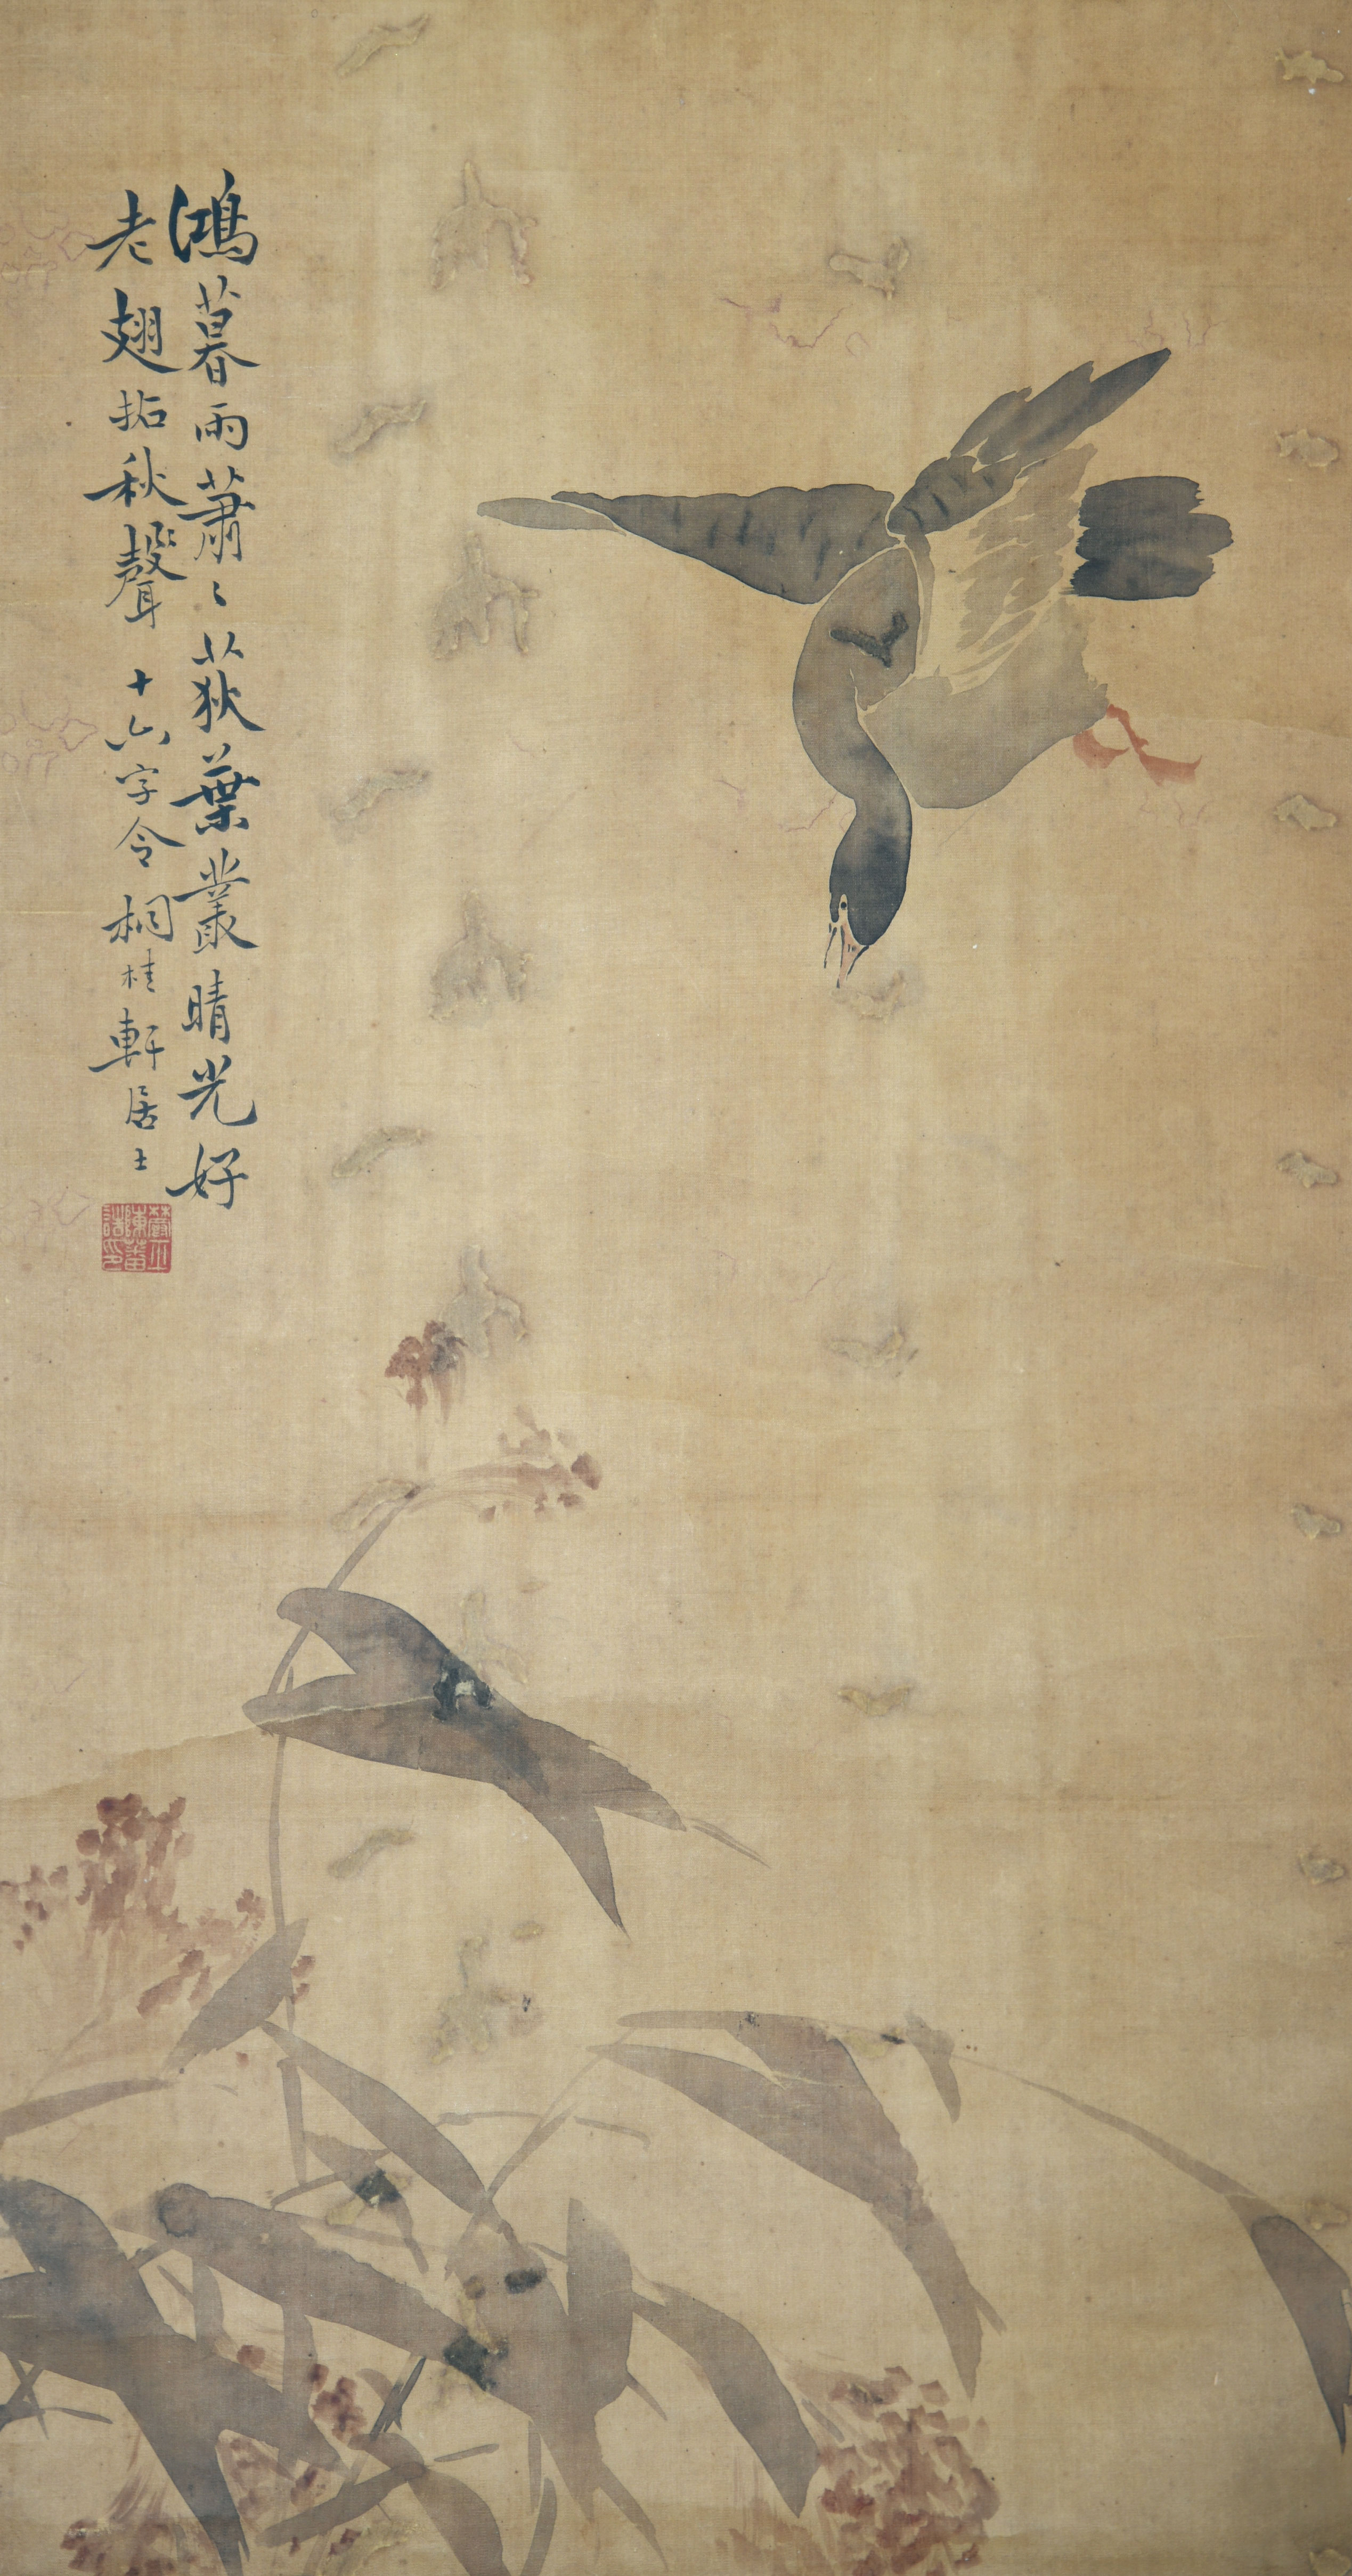 鴻暮雨蕭〻荻葉叢晴光好
老翅拈秋聲 十六字令 桐桂軒居士